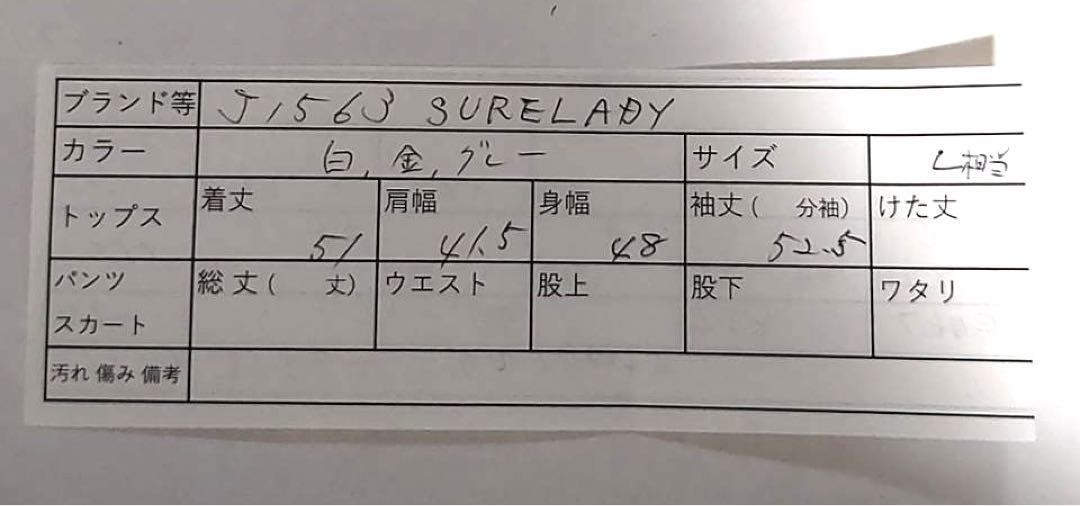 ブランド等 J1563 SURELADY
カラー 白,金,グレー サイズ L相当
トップス 着丈 51 肩幅 41.5 身幅 48 袖丈( 分袖) 52.5 けた丈
パンツ 総丈( 丈) ウエスト 股上 股下 ワタリ
スカート
汚れ 傷み 備考